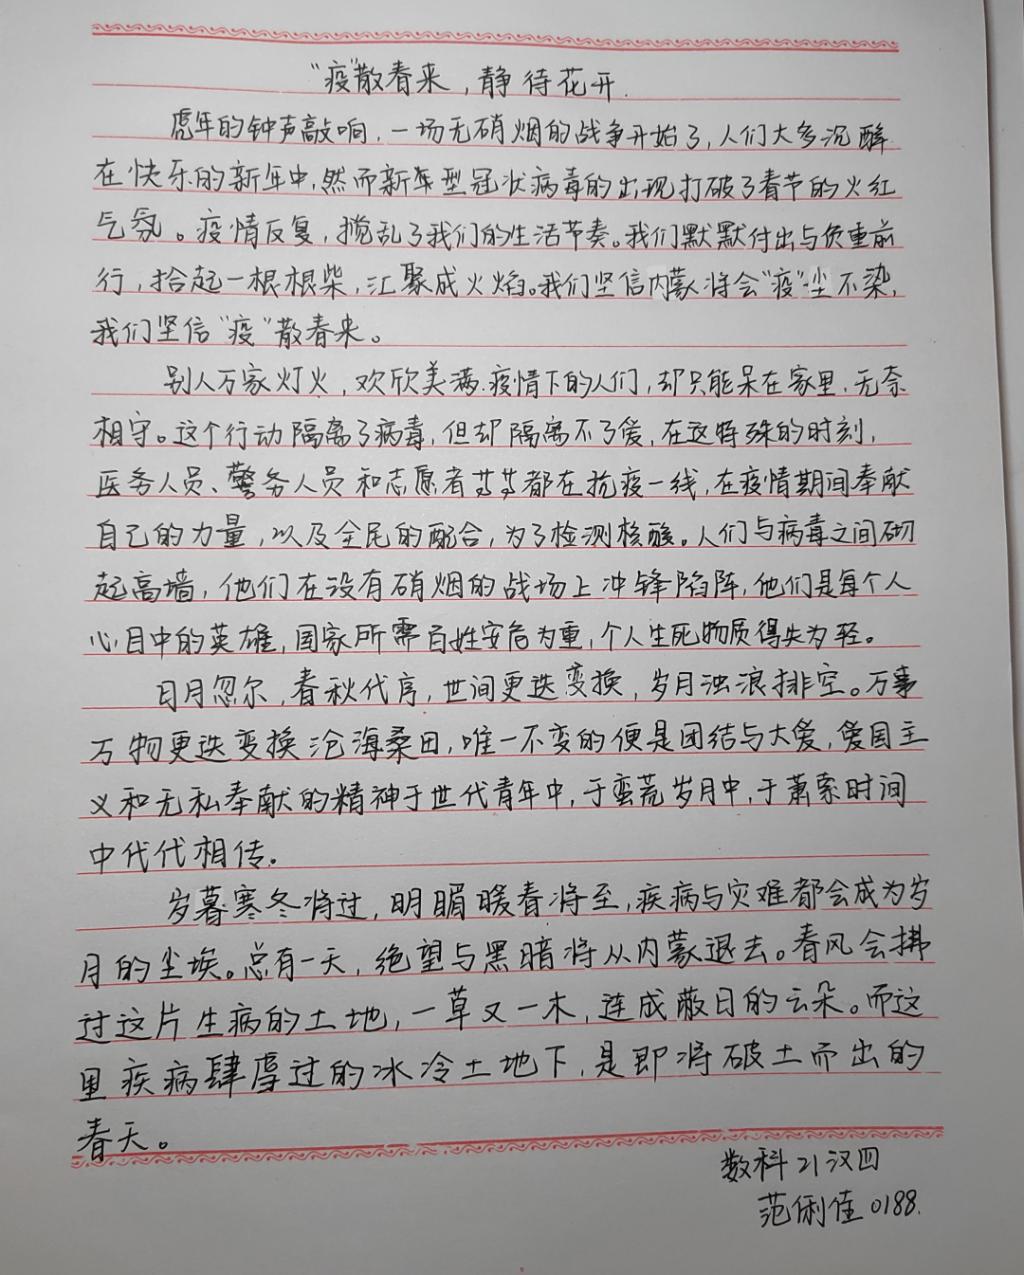 “疫”散春来，静待花开.
虎年的钟声敲响，一场无硝烟的战争开始了，人们大多沉醉
在快乐的新年中，然而新年型冠状病毒的出现打破了春节的火红
气氛。疫情反复，搅乱了我们的生活节奏。我们默默付出与负重前
行，拾起一根根柴，汇聚成火焰。我们坚信内蒙将会“疫”尘不染，
我们坚信“疫”散春来。
别人万家灯火，欢欣美满.疫情下的人们，却只能呆在家里.无奈
相守。这个行动隔离了病毒，但却隔离不了爱，在这特殊的时刻，
医务人员、警务人员和志愿者等等都在抗疫一线，在疫情期间奉献
自己的力量，以及全民的配合，为了检测核酸。人们与病毒之间砌
起高墙，他们在没有硝烟的战场上冲锋陷阵，他们是每个人
心目中的英雄，国家所需百姓安危为重，个人生死物质得失为轻。
日月忽尔，春秋代序，世间更迭变换，岁月浊浪排空。万事
万物更迭变换沧海桑田，唯一不变的便是团结与大爱，爱国主
义和无私奉献的精神于世代青年中，于蛮荒岁月中，于萧索时间
中代代相传.
岁暮寒冬将过，明媚暖春将至，疾病与灾难都会成为岁
月的尘埃。总有一天，绝望与黑暗将从内蒙退去。春风会拂
过这片生病的土地，一草又一木，连成蔽日的云朵。而这
里疾病肆虐过的冰冷土地下，是即将破土而出的
春天。
数科21汉四
范俐佳0188.